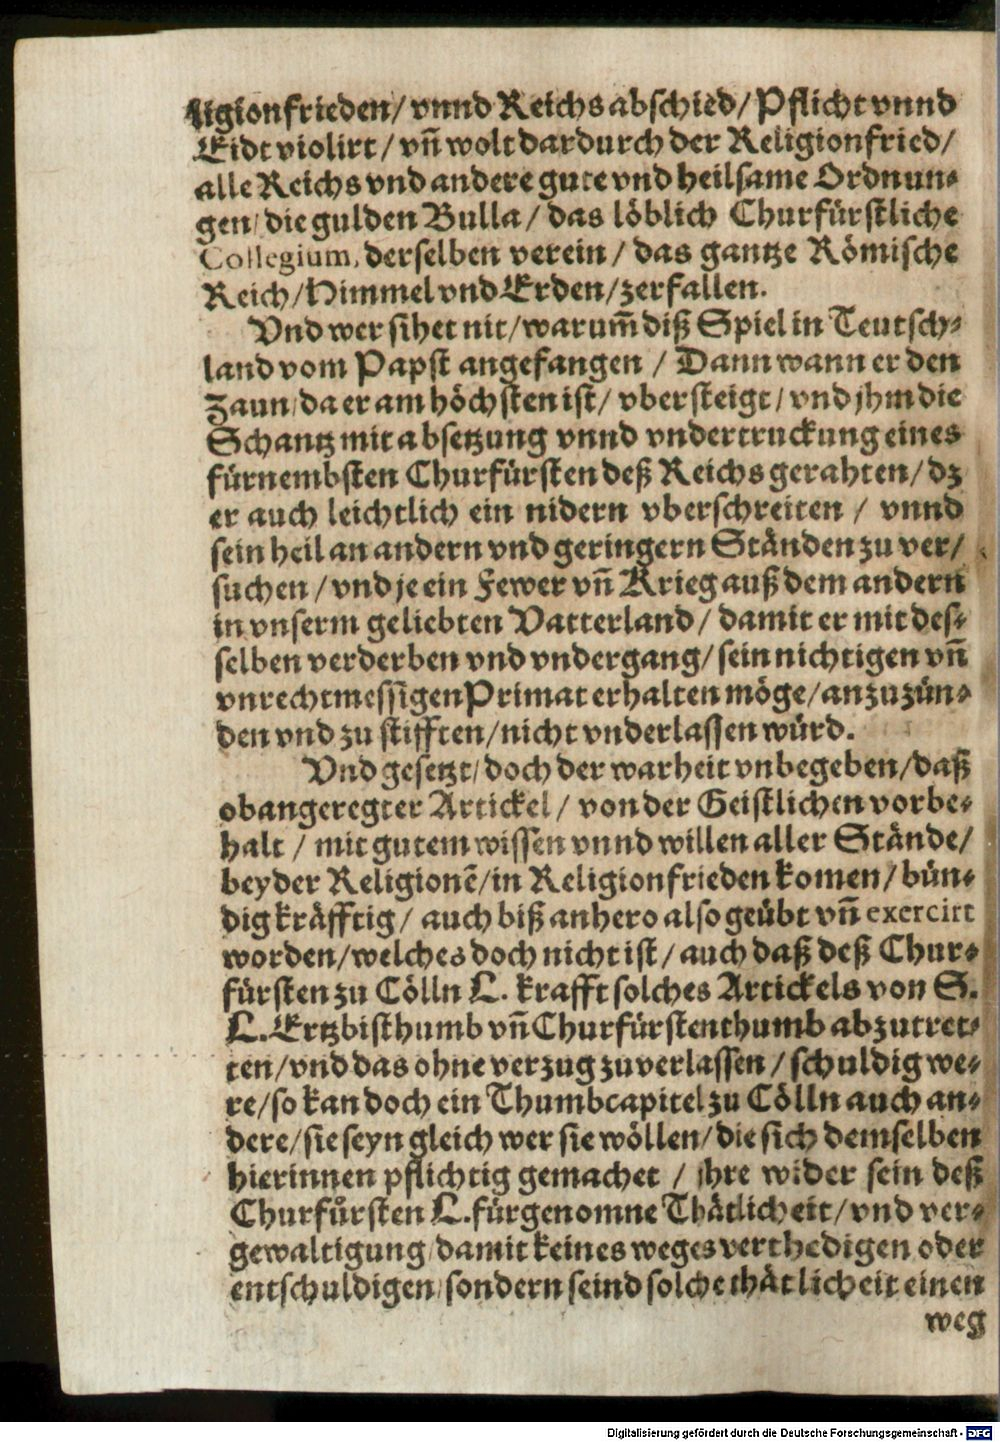 ligionfrieden/ vnnd Reichs abschied/ Pflicht vnnd
Eidt violirt/ vñ wolt dardurch der Religionfried/
alle Reichs vnd andere gute vnd heilsame Ordnun-
gen/ die gulden Bulla/ das löblich Churfürstliche
Collegium, derselben verein/ das gantze Römische
Reich/ Himmel vnd Erden/ zerfallen.
Vnd wer sihet nit/ warum̃ diß Spiel in Teutsch-
land vom Papst angefangen / Dann wann er den
Zaun/ da er am höchsten ist/ vbersteigt/ vnd jhm die
Schantz mit absetzung vnnd vndertruckung eines
fürnembsten Churfürsten deß Reichs gerahten/ dz
er auch leichtlich ein nidern vberschreiten / vnnd
sein heil an andern vnd geringern Ständen zu ver/
suchen / vnd je ein Fewer vñ Krieg auß dem andern
in vnserm geliebten Vatterland/ damit er mit des-
selben verderben vnd vndergang/ sein nichtigen vñ
vnrechtmessigen Primat erhalten möge/ anzuzün-
den vnd zu stifften/ nicht vnderlassen würd.
Vnd gesetzt/ doch der warheit vnbegeben/ daß
obangeregter Artickel / von der Geistlichen vorbe-
halt / mit gutem wissen vnnd willen aller Stände/
beyder Religionē/ in Religionfrieden komen/ bün-
dig kräfftig/ auch biß anhero also geübt vñ exercirt
worden/ welches doch nicht ist/ auch daß deß Chur-
fürsten zu Cölln L. krafft solches Artickels von S.
L. Ertzbisthumb vñ Churfürstenthumb abzutret-
ten/ vnd das ohne verzug zuverlassen / schuldig we-
re/ so kan doch ein Thumbcapitel zu Cölln auch an-
dere/ sie seyn gleich wer sie wöllen/ die sich demselben
hierinnen pflichtig gemachet / jhre wider sein deß
Churfůrsten L. fürgenomne Thätlicheit/ vnd ver-
gewaltigung/ damit keines weges verthedigen oder
entschuldigen/ sondern seind solche thätlicheit einen
weg
Digitalisierung gefördert durch die Deutsche Forschungsgemeinschaft - DFG